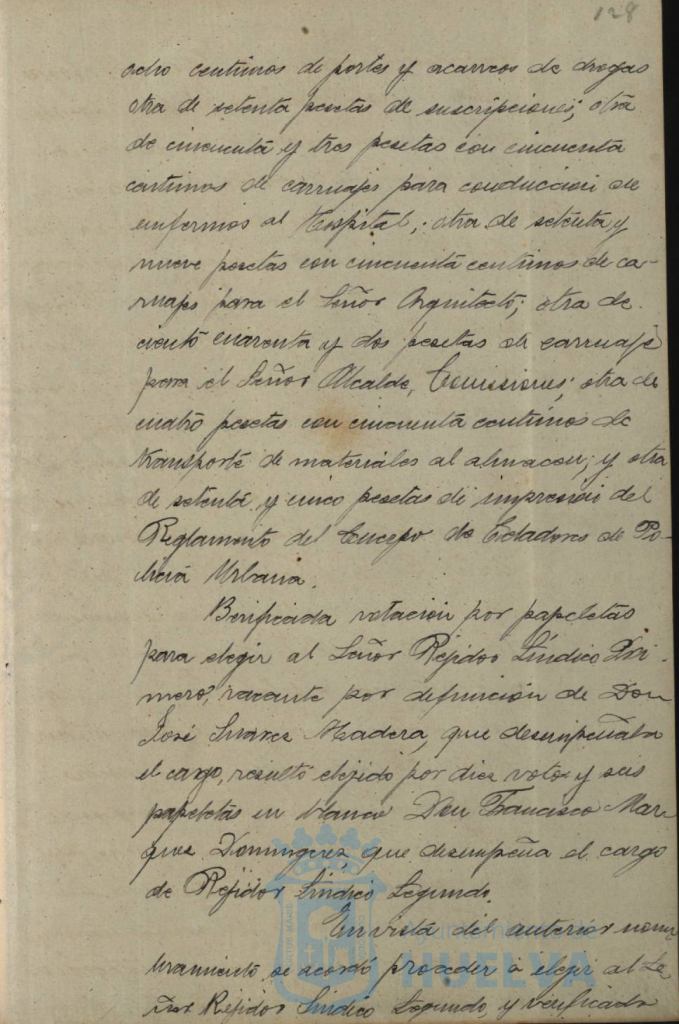 128
ocho centimos de portes y acarreos de drogas
otra de setenta pesetas de suscripciones; otra
de cincuenta y tres pesetas con cincuenta
centimos de carruajes para conduccion de
enfermos al Hospital; otra de setenta y
nueve pesetas con cincuenta centimos de ca-
rruajes para el Señor Arquitecto; otra de
ciento cuarenta y dos pesetas de carruaje
para el Señor Alcalde, Comisiones; otra de
cuatro pesetas con cincuenta centimos de
transporte de materiales al almacen; y otra
de setenta y cinco pesetas de impresion del
Reglamento del Cuerpo de Celadores de Po-
licia Urbana.
Berificada votacion por papeletas
para elegir al Señor Rejidor Síndico Pri-
mero, vacante por defunción de Don
José Suarez Madera, que desempeñaba
el cargo, resultó elejido por diez votos y seis
papeletas en blanco Don Francisco Mar-
quez Dominguez, que desempeña el cargo
de Rejidor Síndico Segundo.
En vista del anterior nom-
bramiento se acordó proceder á elejir al Se-
ñor Rejidor Síndico Segundo, y verificada
Ayuntamiento de
HUELVA